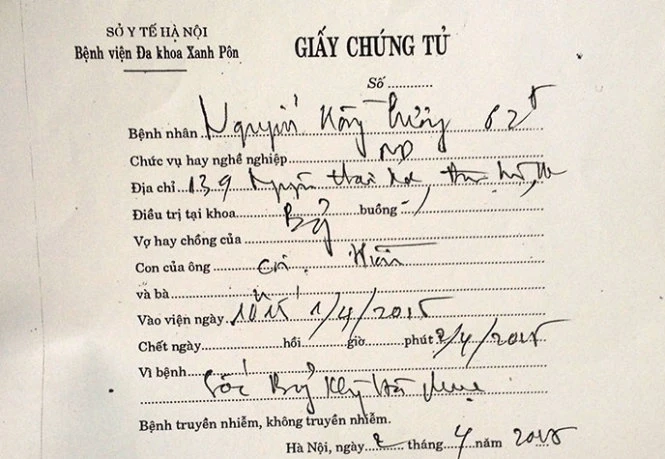 SỞ Y TẾ HÀ NỘI
Bệnh viện Đa khoa Xanh Pôn
GIẤY CHỨNG TỬ
Số
Bệnh nhân Nguyễn Hồng 62t
Chức vụ hay nghề nghiệp
Địa chỉ 139 Nguyễn Thái
Điều trị tại khoa Bỏng buồng
Vợ hay chồng của
Con của ông
và bà
Vào viện ngày 1/4/2015
Chết ngày hồi giờ phút 2/4/2015
Vì bệnh Sốc Bỏng
Bệnh truyền nhiễm, không truyền nhiễm.
Hà Nội, ngày 2 tháng 4 năm 2015